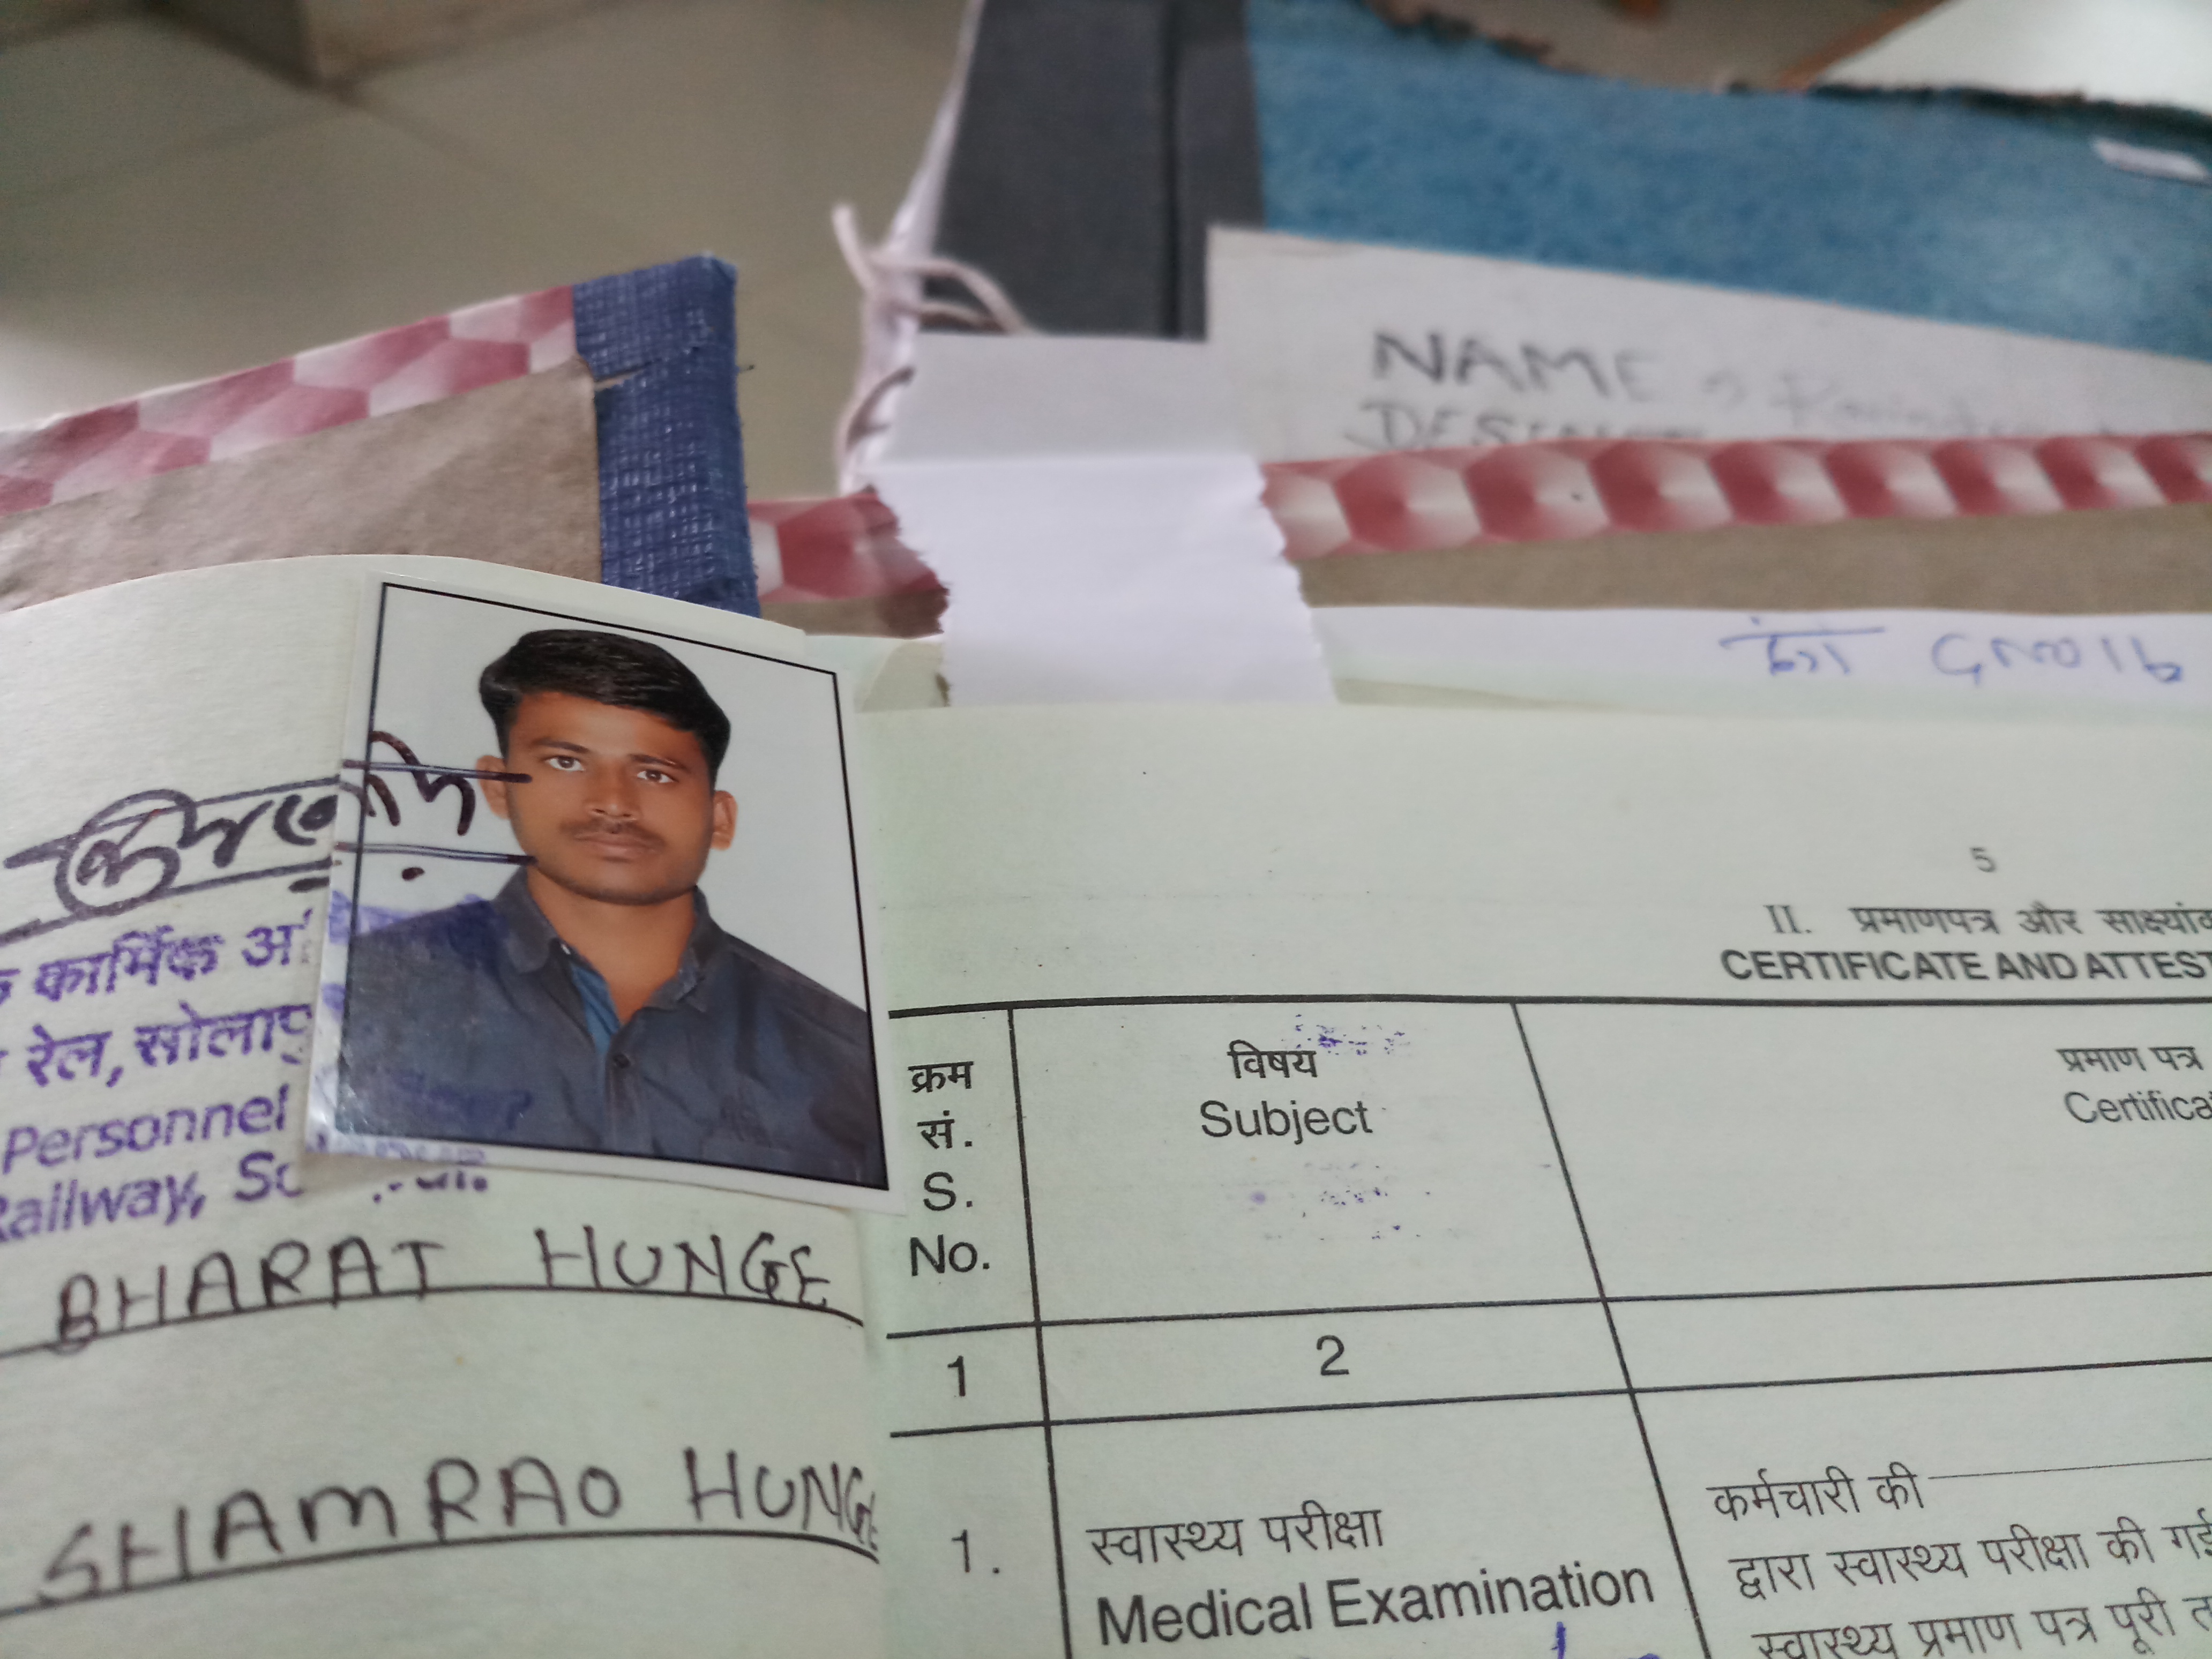 NAME
कार्मिक
रेल, सोलापु
Personnel
Railway,
BHARAT HUNGE
SHAMRAO HUNGE
5
II. प्रमाणपत्र और
CERTIFICATE AND
क्रम
सं.
S.
No.
विषय
Subject
प्रमाण पत्र
1
2
1.
स्वास्थ्य परीक्षा
Medical Examination
कर्मचारी की
द्वारा स्वास्थ्य परीक्षा की गई
स्वास्थ्य प्रमाण पत्र पूरी